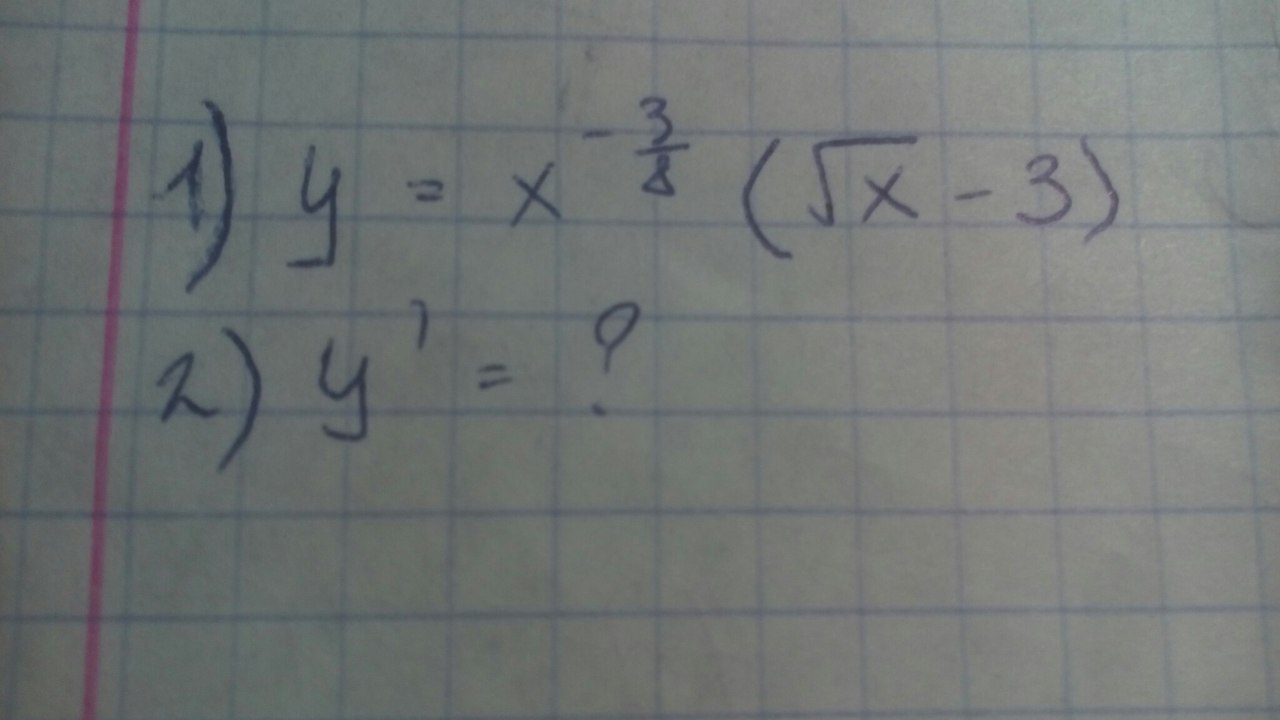 1) y = x^{-\frac{3}{8}} (\sqrt{x} - 3)
2) y' = ?